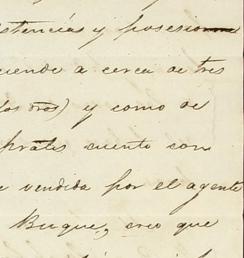 istencias y posesion
iende a cerca de tres
los dros) y como de
prates cuento con
vendida por el agente
Buque, creo que